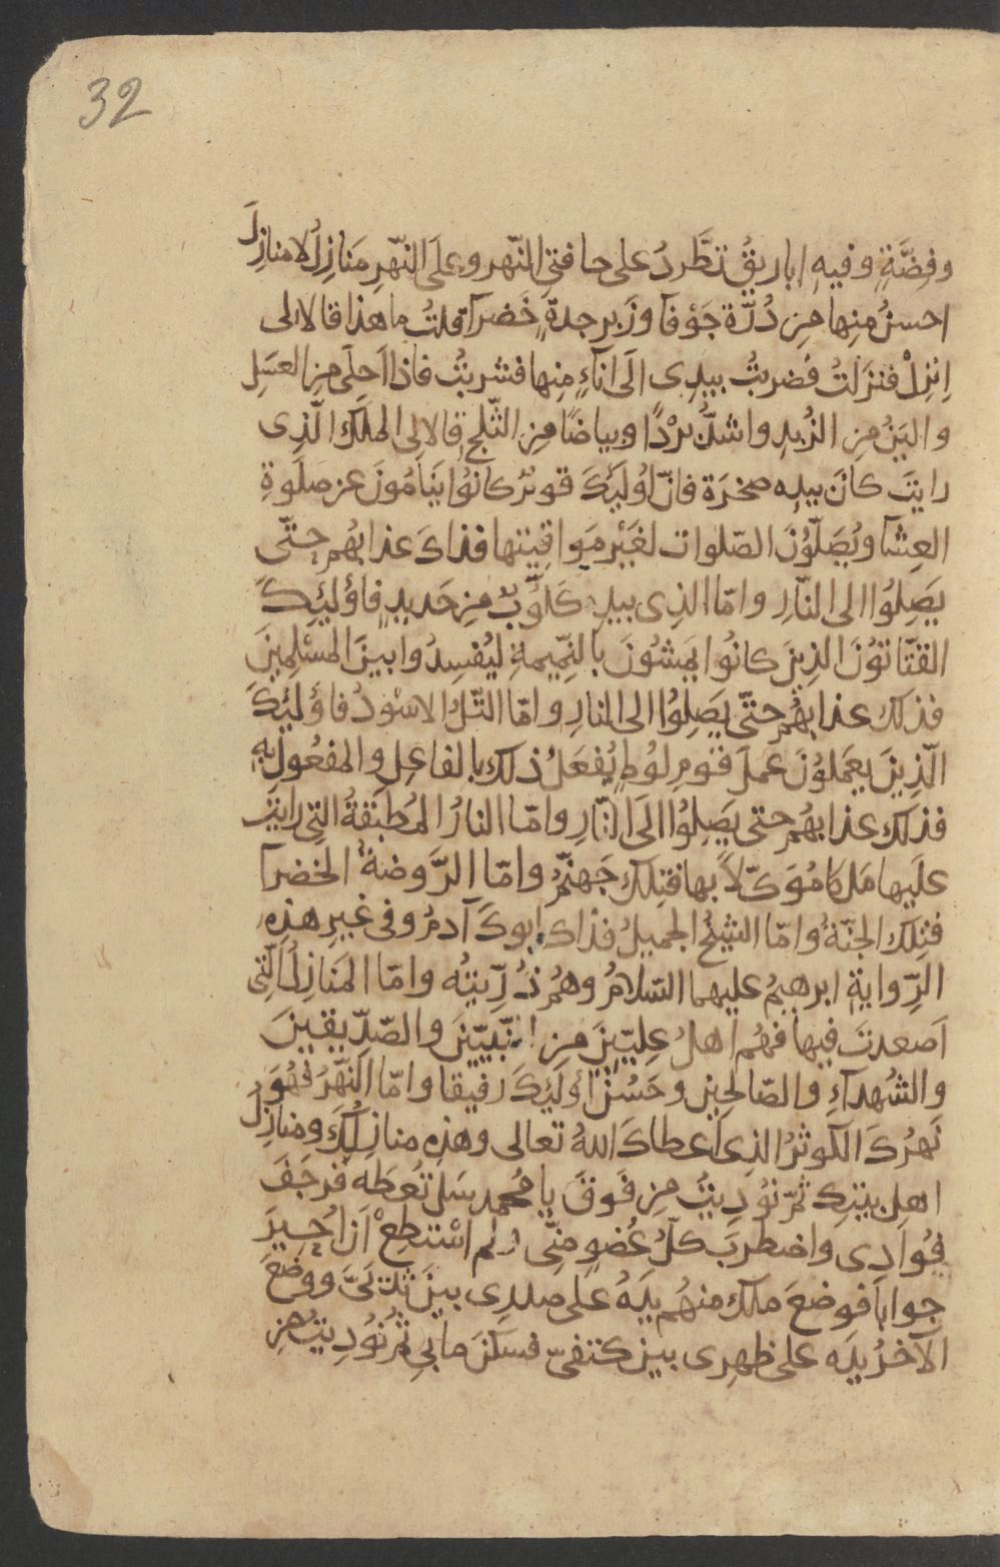 32
وفِضَّةٍ وفيهِ اباريقُ تطَّردُ على حافتي النّهر وعلَى النّهرِ مَنازِلُ لا منازِلَ
احسنُ مِنها مِن دُرّة جَوْفآ وزَبرجدةٍ خَضرآ قلتُ ما هذا قالا لى
اِنزِلْ فنزَلتُ فضربتُ بيدِى الَى اناءٍ مِنها فشربتُ فاذا احلَى مِن العسَلِ
والينُ مِن الزُبدِ واشدُّ بردًا وبياضًا مِن الثّلج قالا لِى الملَك الّذِى
رايتَ كانَ بيدِه صخرَة فانّ اُولَئكَ قومٌ كانُوا يَنامُونَ عن صلَوةِ
العِشآ ويُصَلّوُنَ الصّلوات لغَيْرِ مَواقِيتها فذاكَ عذابهُم حتّى
يَصِلُوا الى النّارِ وامّا الذِى بيدِه كَلُّوبٌ مِن حَديدٍ فاُولَئِكَ
القتّاتوُنَ الذِينَ كانُوا يَمشُونَ بالنمِيمةِ ليُفسِدُوا بينَ المسْلِمينَ
فذلك عذابهُم حتّى يَصِلُوا الى النارِ وامّا التّلُ الاسْودُ فاُولَئكَ
الّذِينَ يعمَلوُنَ عملَ قومِ لوُطٍ يُفعَلُ ذلك بالفاعِلِ والمفعُولِ بِهِ
فذلك عذابهُم حتى يَصِلُوا الَى النّارِ وامّا النارُ المُطبَقةُ التِى رايتَ
علَيها مَلَكا مُوَكّلاً بها فتِلك جَهنّمُ وامّا الرَّوضةُ الخضرآ
فتِلك الجنّةُ وامّا الشيخُ الجميلُ فذاك ابوكَ آدمُ وفى غيرِ هذِهِ
الرِّوايةِ ابرهيمُ عليهما السّلامُ وهُم ذُرّيتُه وامّا المَنازِلُ الّتِى
اَصعدتَ فيها فهُم اهلُ عِليّينَ مِن النّبيّينَ والصّدّيقينَ
والشُهدآءِ والصّالحِين وحَسُنَ اُولَئِكَ رفيقا وامّا النّهَرُ فهُوَ
نَهرُكَ الكوثرُ الذِى اعطاكَ اللهُ تعالى وهذِه منازِلُكَ ومنازِلُ
اهلِ بيتِك ثمّ نوُدِيتُ مِن فَوقَ يا مُحمد سَل تُعطَه فرَجَفَ
فُوادِى واضطربَ كلُّ عُضوٍ منّى ولم اسْتطِعْ اَن اُجِيبَ
جوابا فوضعَ ملك منهُم يدَهُ على صدرى بينَ ثديَىَّ ووضعَ
الآخرُ يدَه على ظهرِى بين كتفىّ فسكنَ ما بى ثم نوُدِيتُ مِن